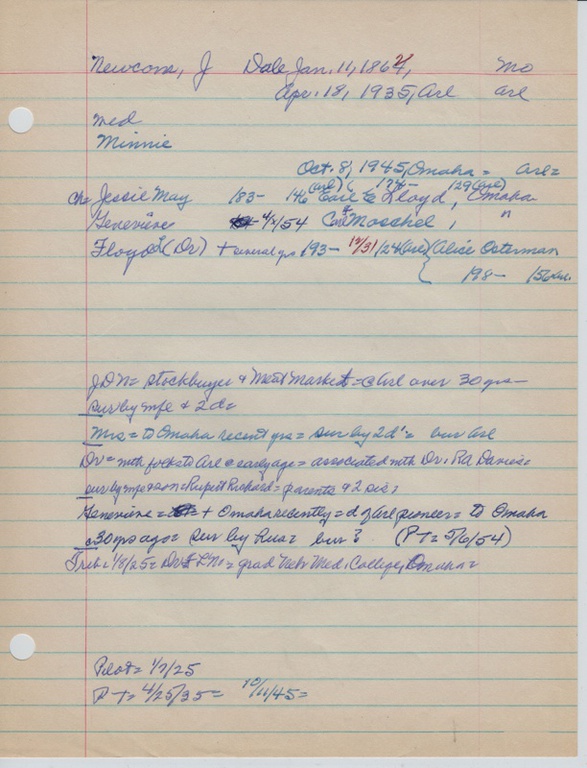 Newcom, J Dale Jan. 11, 1864, Mo
Apr. 18, 1935, Arl arl
med
Minnie
Oct. 8, 1945, Omaha = arl =
ch Jessie May 183- 146 (arl) Earl E Lloyd, 174- 129 (arl) Omaha
Genevieve 4/ /54 Carl Moschel, "
Floyd (Dr) + several yrs 193- 12/31/24 (arl) { Alice Osterman
198- 156 arl.
J D N = stockbuyer & Meat Market = @ Arl over 30 yrs -
sur by wife & 2d =
Mrs = to Omaha recent yrs = sur by 2d's = bur arl
Dr = with folks to Arl @ early age = associated with Dr. Davies =
sur by wife & son = Rupert Richard = parents & 2 sis =
Genevieve = + Omaha recently = d of Arl pioneer = to Omaha
c 30 yrs ago = sur by hus = bur ? (P T = 5/6/54)
Trib = 1/8/25 = Dr = grad Med. College, Omaha =
Pilot = 1/7/25
P T = 4/25/35 = 10/11/45 =